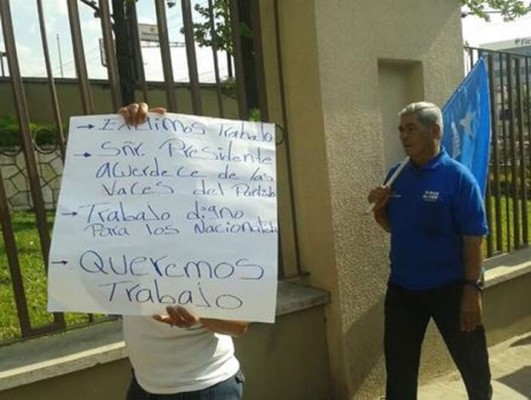 → Exijimos Trabajo
→ Señr. Presidente
acuerdece de las
vaces del Partido
→ Trabajo digno
Para los Nacionalistas
→ Queremos
Trabajo